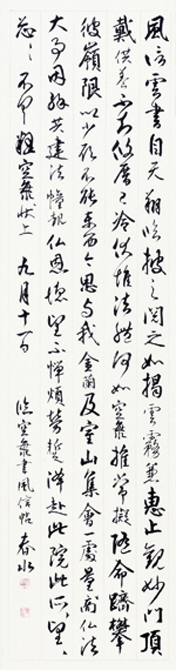 風信雲書自天翔臨披之閲之如揭雲霧兼惠止觀妙門頂
戴供養不知攸厝已冷伏惟法體何如空海推常擬隨命躋攀
彼嶺限以少願不能東西今思与我金蘭及室山集會一處量商仏法
大事因縁共建法幢報仏恩徳望不憚煩勞蹔降赴此院此所望々
忩々不具釋空海状上 九月十一日 臨空海書風信帖 春水